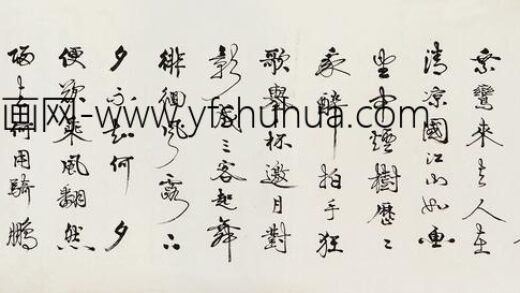 乘鸞來去人在
清涼國江山如畫
望中煙樹歷〻
我醉拍手狂
歌舉杯邀月對
影成三客起舞
徘徊風露下
夕不知何夕
便欲乘風翻然
歸去何用騎鵬
画网-www.yfshuhua.com